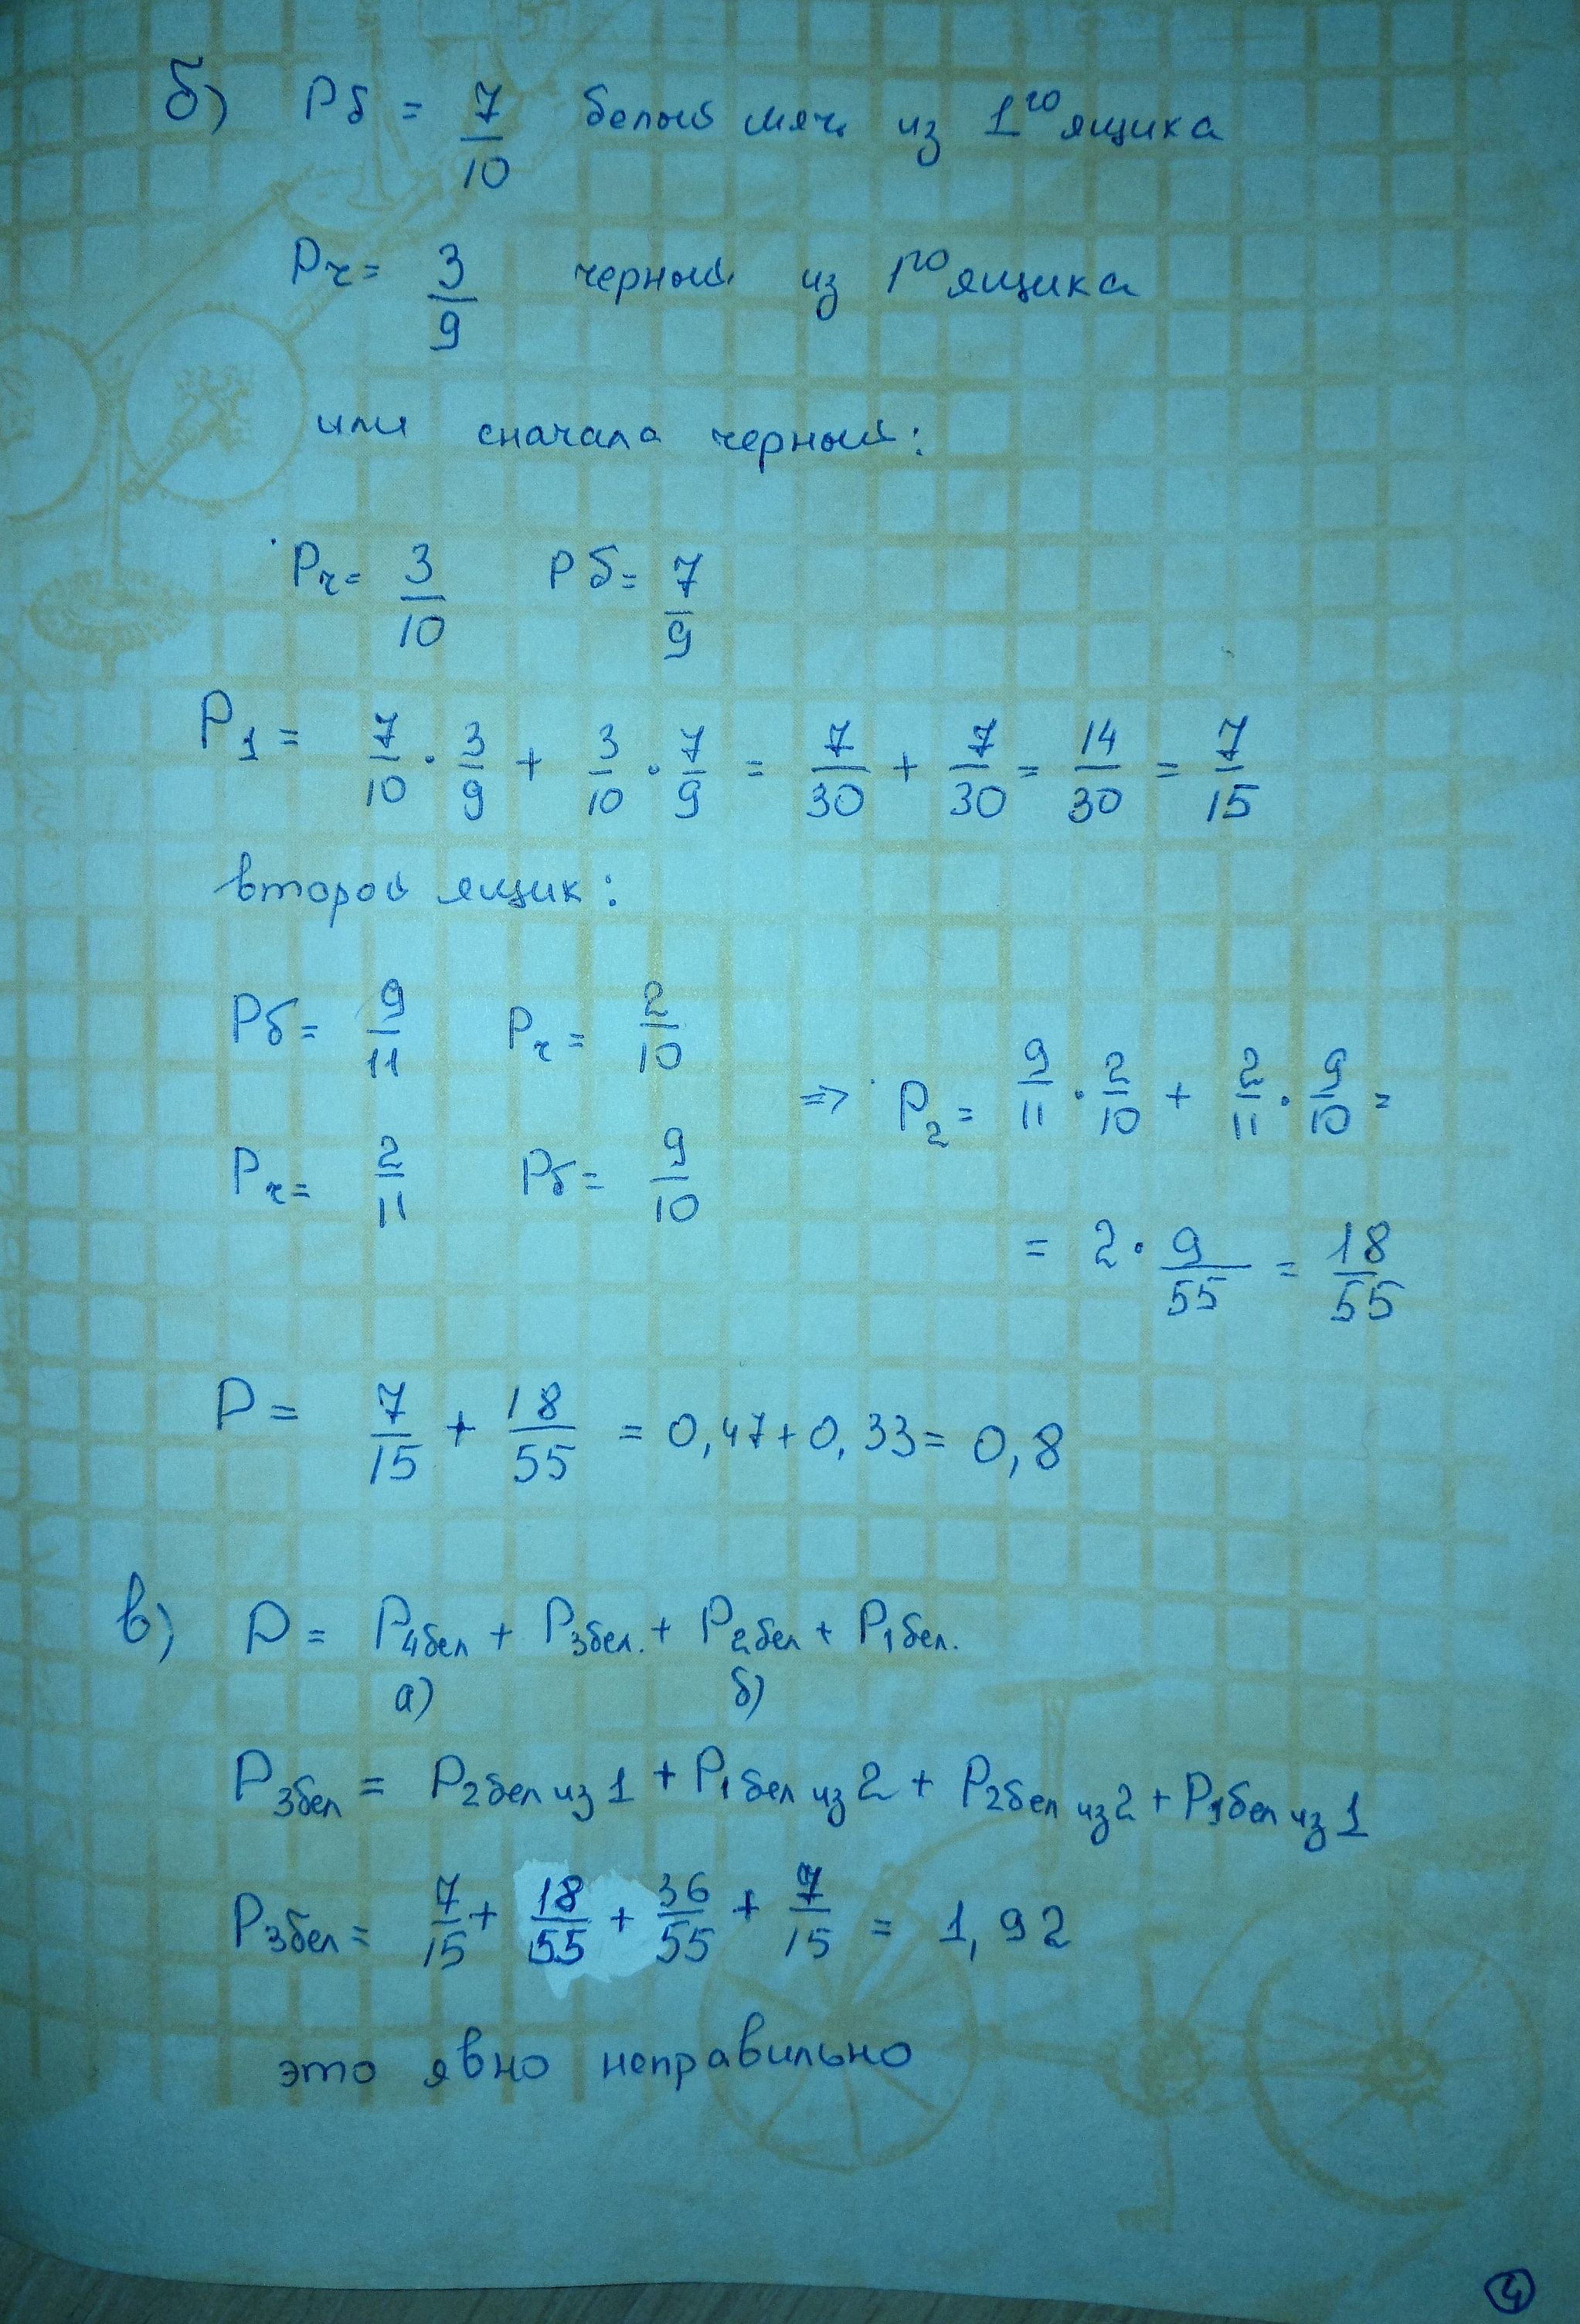 б) Pб = 7/10 белый мяч из 1го ящика
Pч = 3/9 черный из 1го ящика
или сначала черный:
Pч = 3/10 Pб = 7/9
P1 = 7/10 · 3/9 + 3/10 · 7/9 = 7/30 + 7/30 = 14/30 = 7/15
второй ящик:
Pб = 9/11 Pч = 2/10
Pч = 2/11 Pб = 9/10
=> P2 = 9/11 · 2/10 + 2/11 · 9/10 =
= 2 · 9/55 = 18/55
P = 7/15 + 18/55 = 0,47 + 0,33 = 0,8
в) P = P4бел + P3бел. + P2бел + P1бел.
а) б)
P3бел = P2бел из 1 + P1бел из 2 + P2бел из 2 + P1бел из 1
P3бел = 7/15 + 18/55 + 36/55 + 7/15 = 1,92
это явно неправильно
4